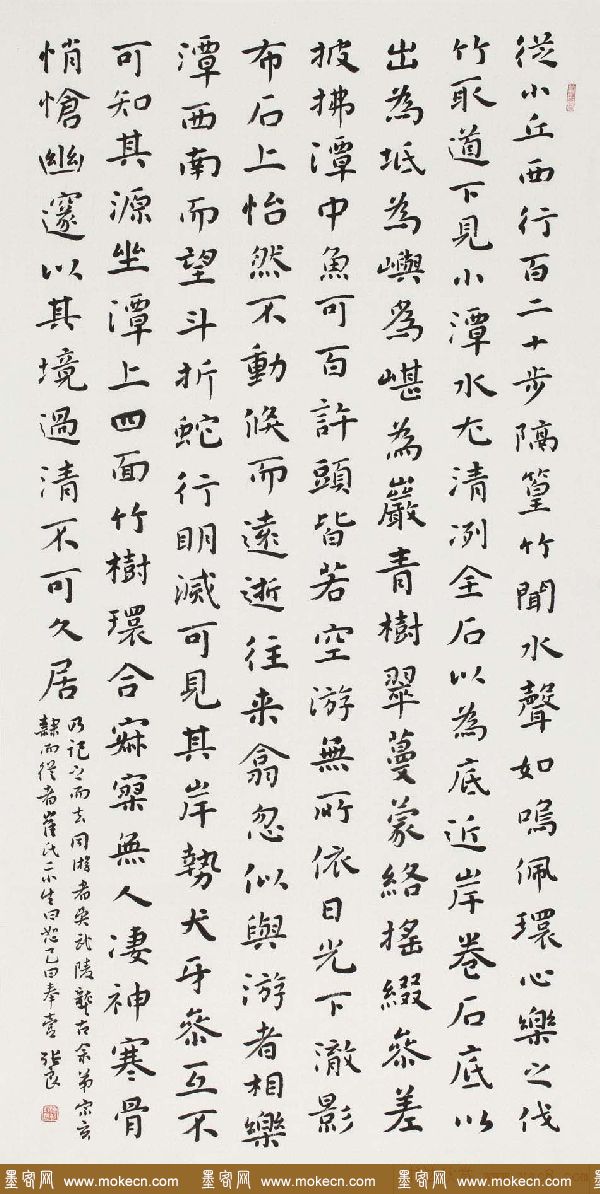 從小丘西行百二十步隔篁竹聞水聲如鳴佩環心樂之伐
竹取道下見小潭水尤清冽全石以為底近岸卷石底以
出為坻為嶼為嵁為巖青樹翠蔓蒙絡搖綴參差
披拂潭中魚可百許頭皆若空游無所依日光下澈影
布石上怡然不動倏而遠逝往来翕忽似與游者相樂
潭西南而望斗折蛇行明滅可見其岸勢犬牙參互不
可知其源坐潭上四面竹樹環合寂寥無人凄神寒骨
悄愴幽邃以其境過清不可久居
乃記之而去同游者吳武陵龔古余弟宗玄
隸而從者崔氏二小生曰恕己曰奉壹
墨客网 www.mokecn.com 墨客网 www.mokecn.com 墨客网 www.mokecn.com 墨客网 www.mokecn.com